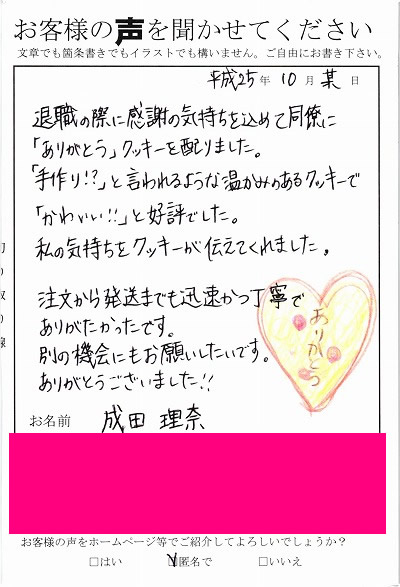 お客様の声を聞かせてください
文章でも箇条書きでもイラストでも構いません。ご自由にお書き下さい。
平成25年 10月 某日
退職の際に感謝の気持ちを込めて同僚に
「ありがとう」クッキーを配りました。
「手作り!?」と言われるような温かみのあるクッキーで
「かわいい!!」と好評でした。
私の気持ちをクッキーが伝えてくれました。
注文から発送までも迅速かつ丁寧で
ありがたかったです。
別の機会にもお願いしたいです。
ありがとうございました!!
ありがとう
お名前 成田 理奈
お客様の声をホームページ等でご紹介してよろしいでしょうか?
□はい □匿名で □いいえ